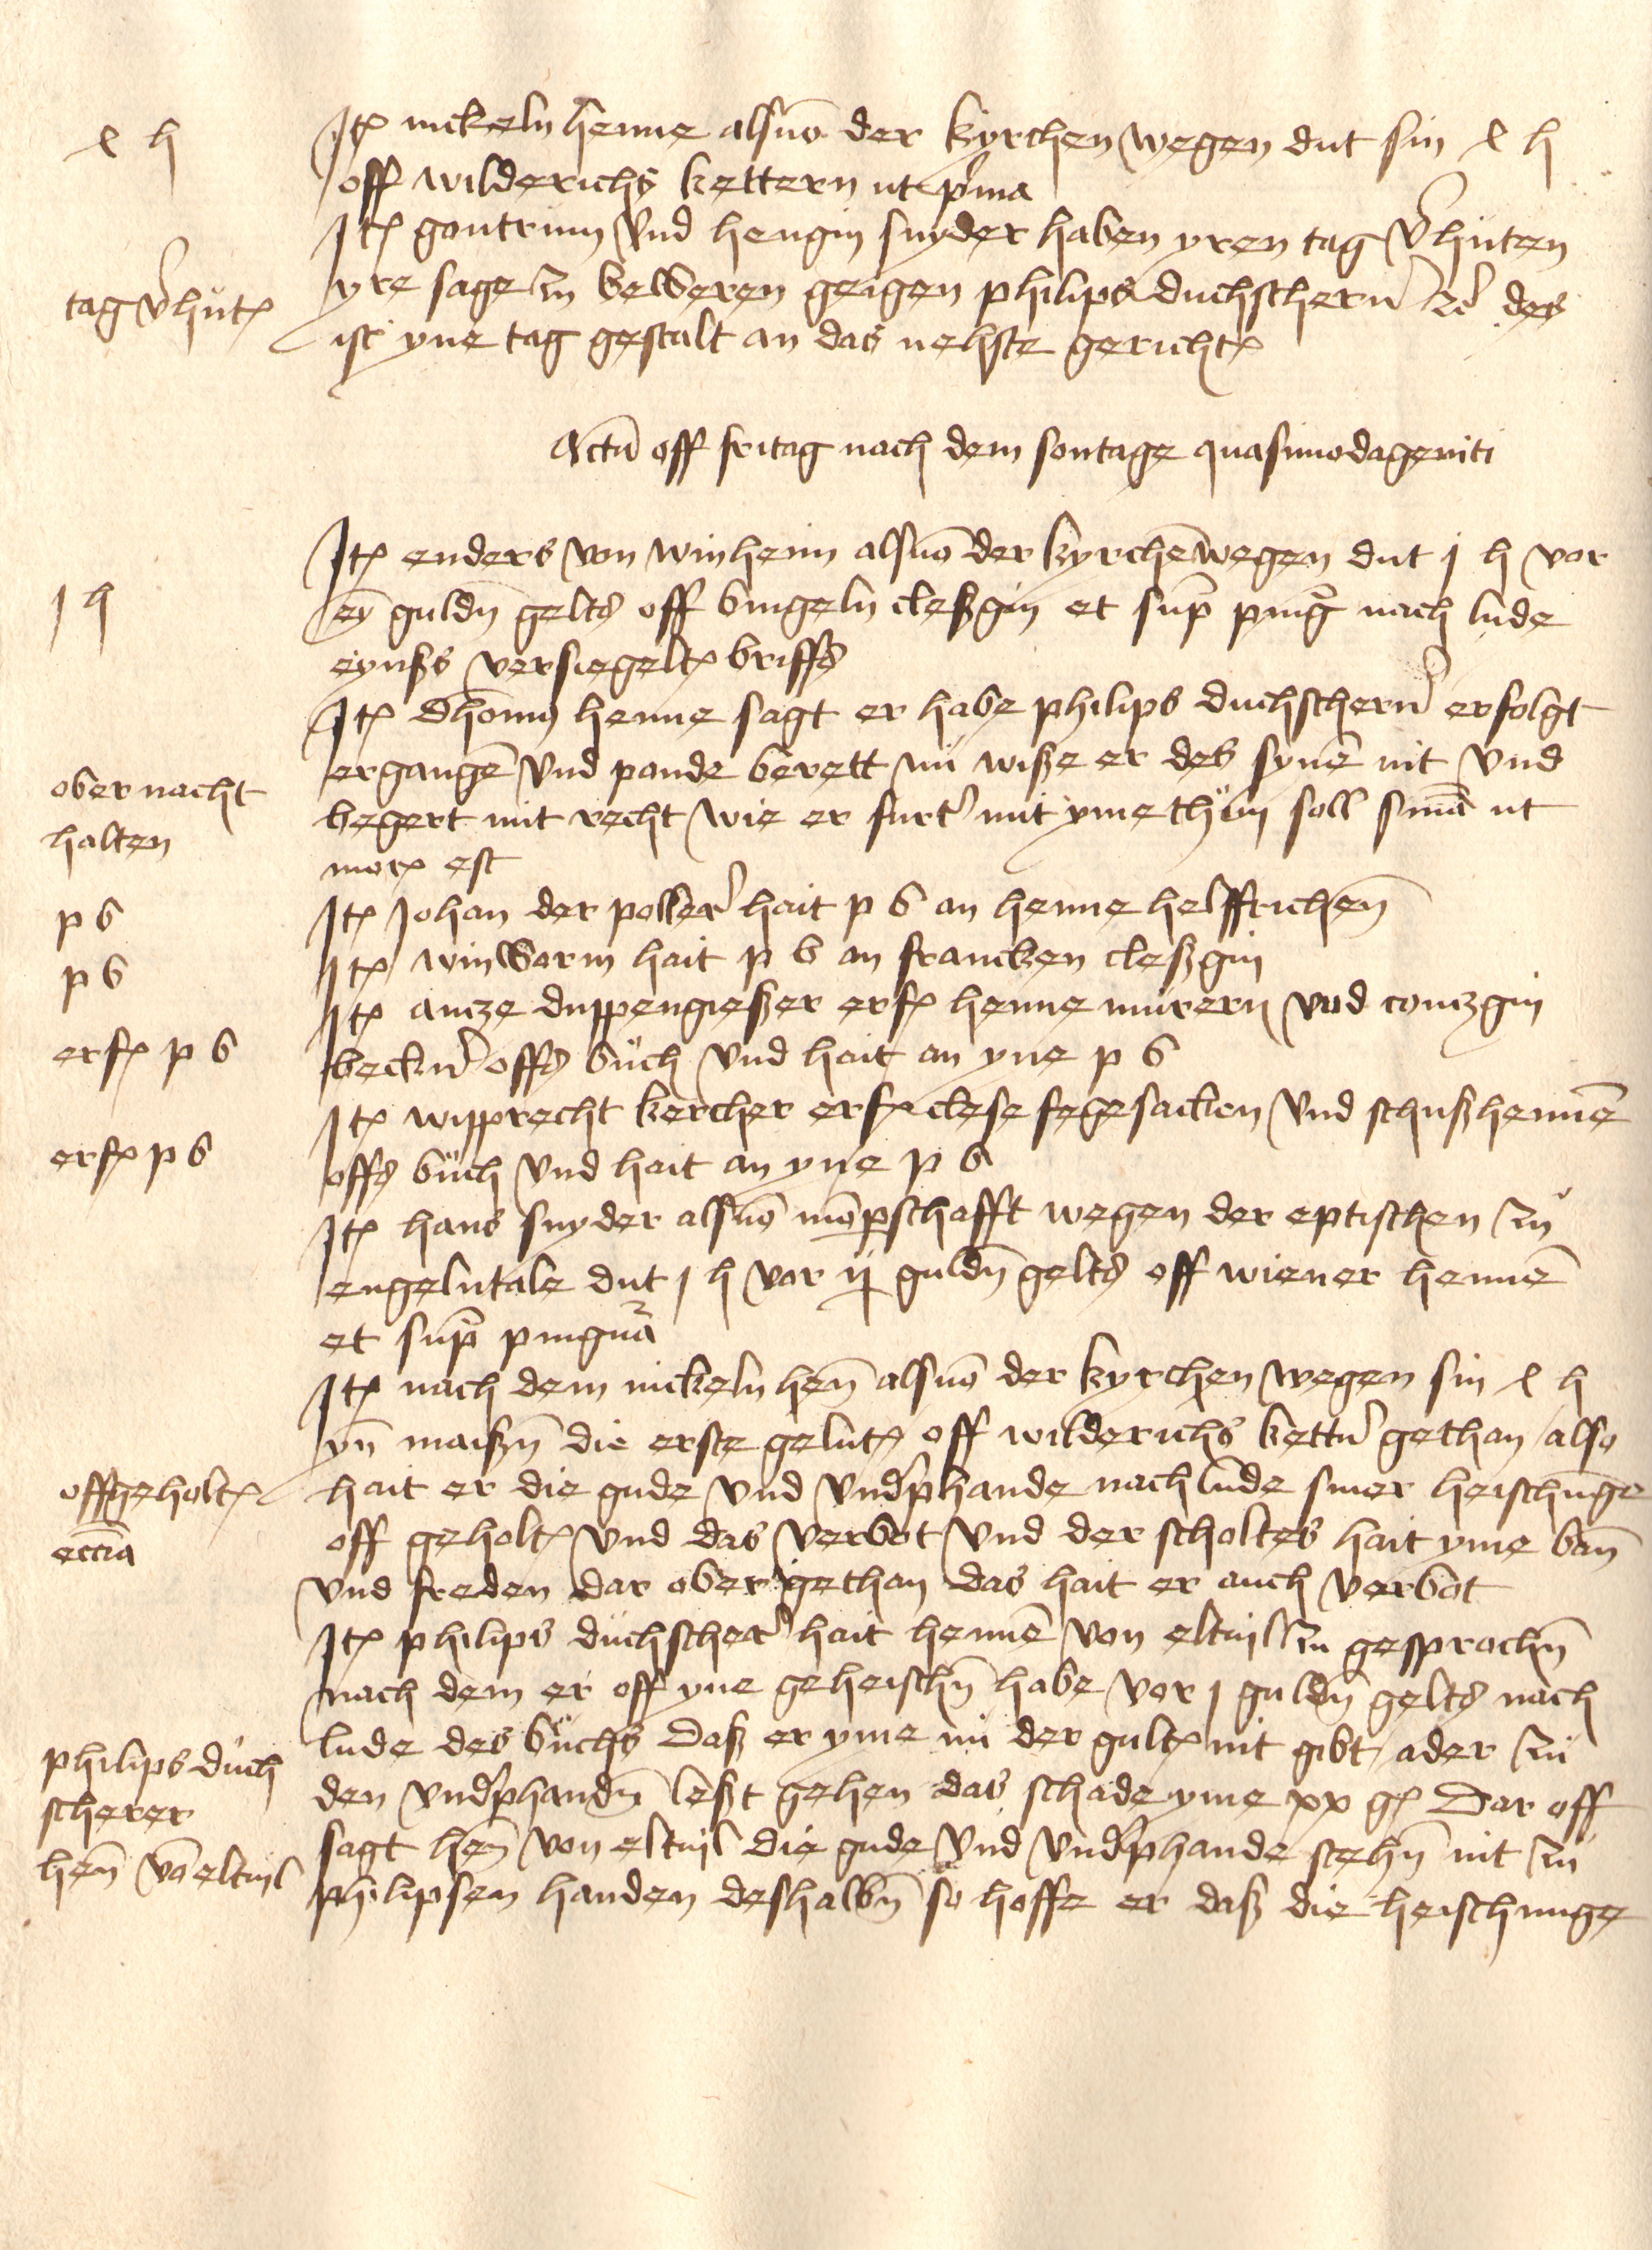 x h
Jt(em) nickeln henne alsuo der kyrchen wegen dut sin x h
off wilderichs kettern ut p(ri)ma
Jt(em) gontrum und hengin snyder haben yren tag v(er)huten
tag v(er)hut(en)
yre sage zu beweren geigen philips duchscher(er)n des
ist yne tag gestalt an das nehste gericht(e)
Actu(m) off fritag nach dem sontage quasimodageniti
Jt(em) enders von winheim alsuo der kyrche(n) wegen dut j h vor
j h
ey(n) guldn gelts off bingeln cleßgin et sup(ra) ping(nora) nach lude
eynßs versiegelt(en) briffs
Jt(em) dhomu(s) henne sagt er habe philips duchscher(er)n erfolgt
ergange(n) und pande berett nu wiße er des syne(n) nit und
ober nacht
begert mit recht wie er furt(er) mit yme thun soll s(e)n(tenti)a ut
halten
mor(is) est
p b
Jt(em) Johan der poller hait p b an henne helffrichen
p b
Jt(em) winworm hait p b an francken cleßgin
Jt(em) ancze duppengießer erf(olgt) henne murern und conczgin
erf(olgt) p b
becker offs buch und hait an yne p b
Jt(em) wipprecht kercher erf(olgt) clese fegesacken und schuß henne(n)
erf(olgt) p b
offs buch und hait an yne p b
Jt(em) hans snyder alsuo mo(m)perschafft wegen der eptischen zu
engelntale dut j h vor ij guldn gelts off wiener henne(n)
et sup(ra) pingn(or)a
Jt(em) nach dem nickeln hen(ne) alsuo der kyrchen wegen sin x h
yn maißn die erste gelut(en) off wilderichs ketter gethan also
offgeholt(en)
hait er die gude und und(er)phande nach lude siner heischu(n)ge
ecc(les)ia
off geholt(en) und das verbot und der scholtes hait yme ban
und freden dar ober gethan das hait er auch verbot
Jt(em) philips duchscher(er) hait henne(n) von eltuil zu gesprochn
nach dem er off yne geheischn habe vor j guldn gelts nach
lude des buchs Daß er yme nu der gult(e) nit gibt ader zu
philips duch
den und(er)phandn leßt gehen das schade yme xx g(ulden) Dar off
scherer
sagt hen(ne) von eltuil die gude und und(er)phande stehn nit zu
hen(ne) vo(n) eltuil
philipsen handen deshalbn so hoffe er daß die heischunge